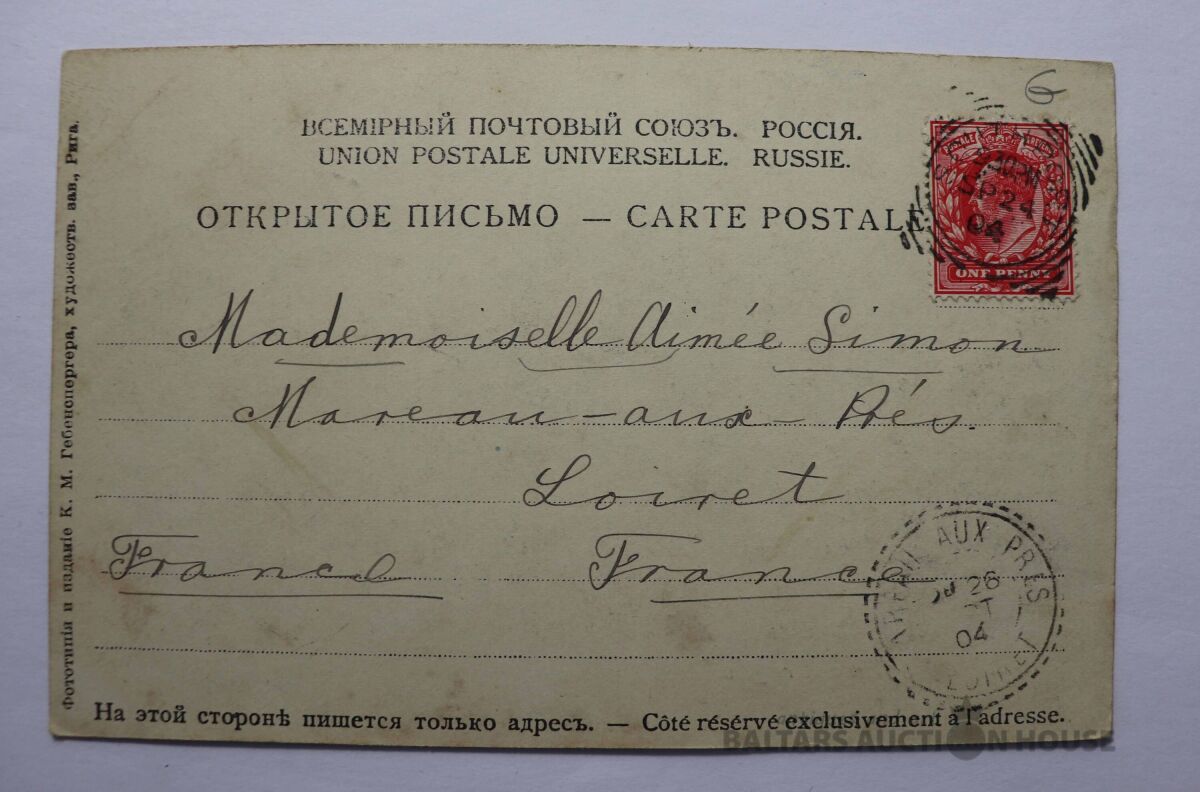 6
ВСЕМІРНЫЙ ПОЧТОВЫЙ СОЮЗЪ. РОССІЯ.
UNION POSTALE UNIVERSELLE. RUSSIE.
ОТКРЫТОЕ ПИСЬМО — CARTE POSTALE
POSTAGE REVENUE
SP 24
04
ONE PENNY
Mademoiselle Aimée Simon
Mareau-aux-Prés.
Loiret
France France
MAREAU AUX PRÈS
26
04
LOIRET
Фототипія и изданіе К. М. Гебенспергера, художеств. зав., Рига.
На этой сторонѣ пишется только адресъ. — Côté résérvé exclusivement à l'adresse.
BALTARS AUCTION HOUSE